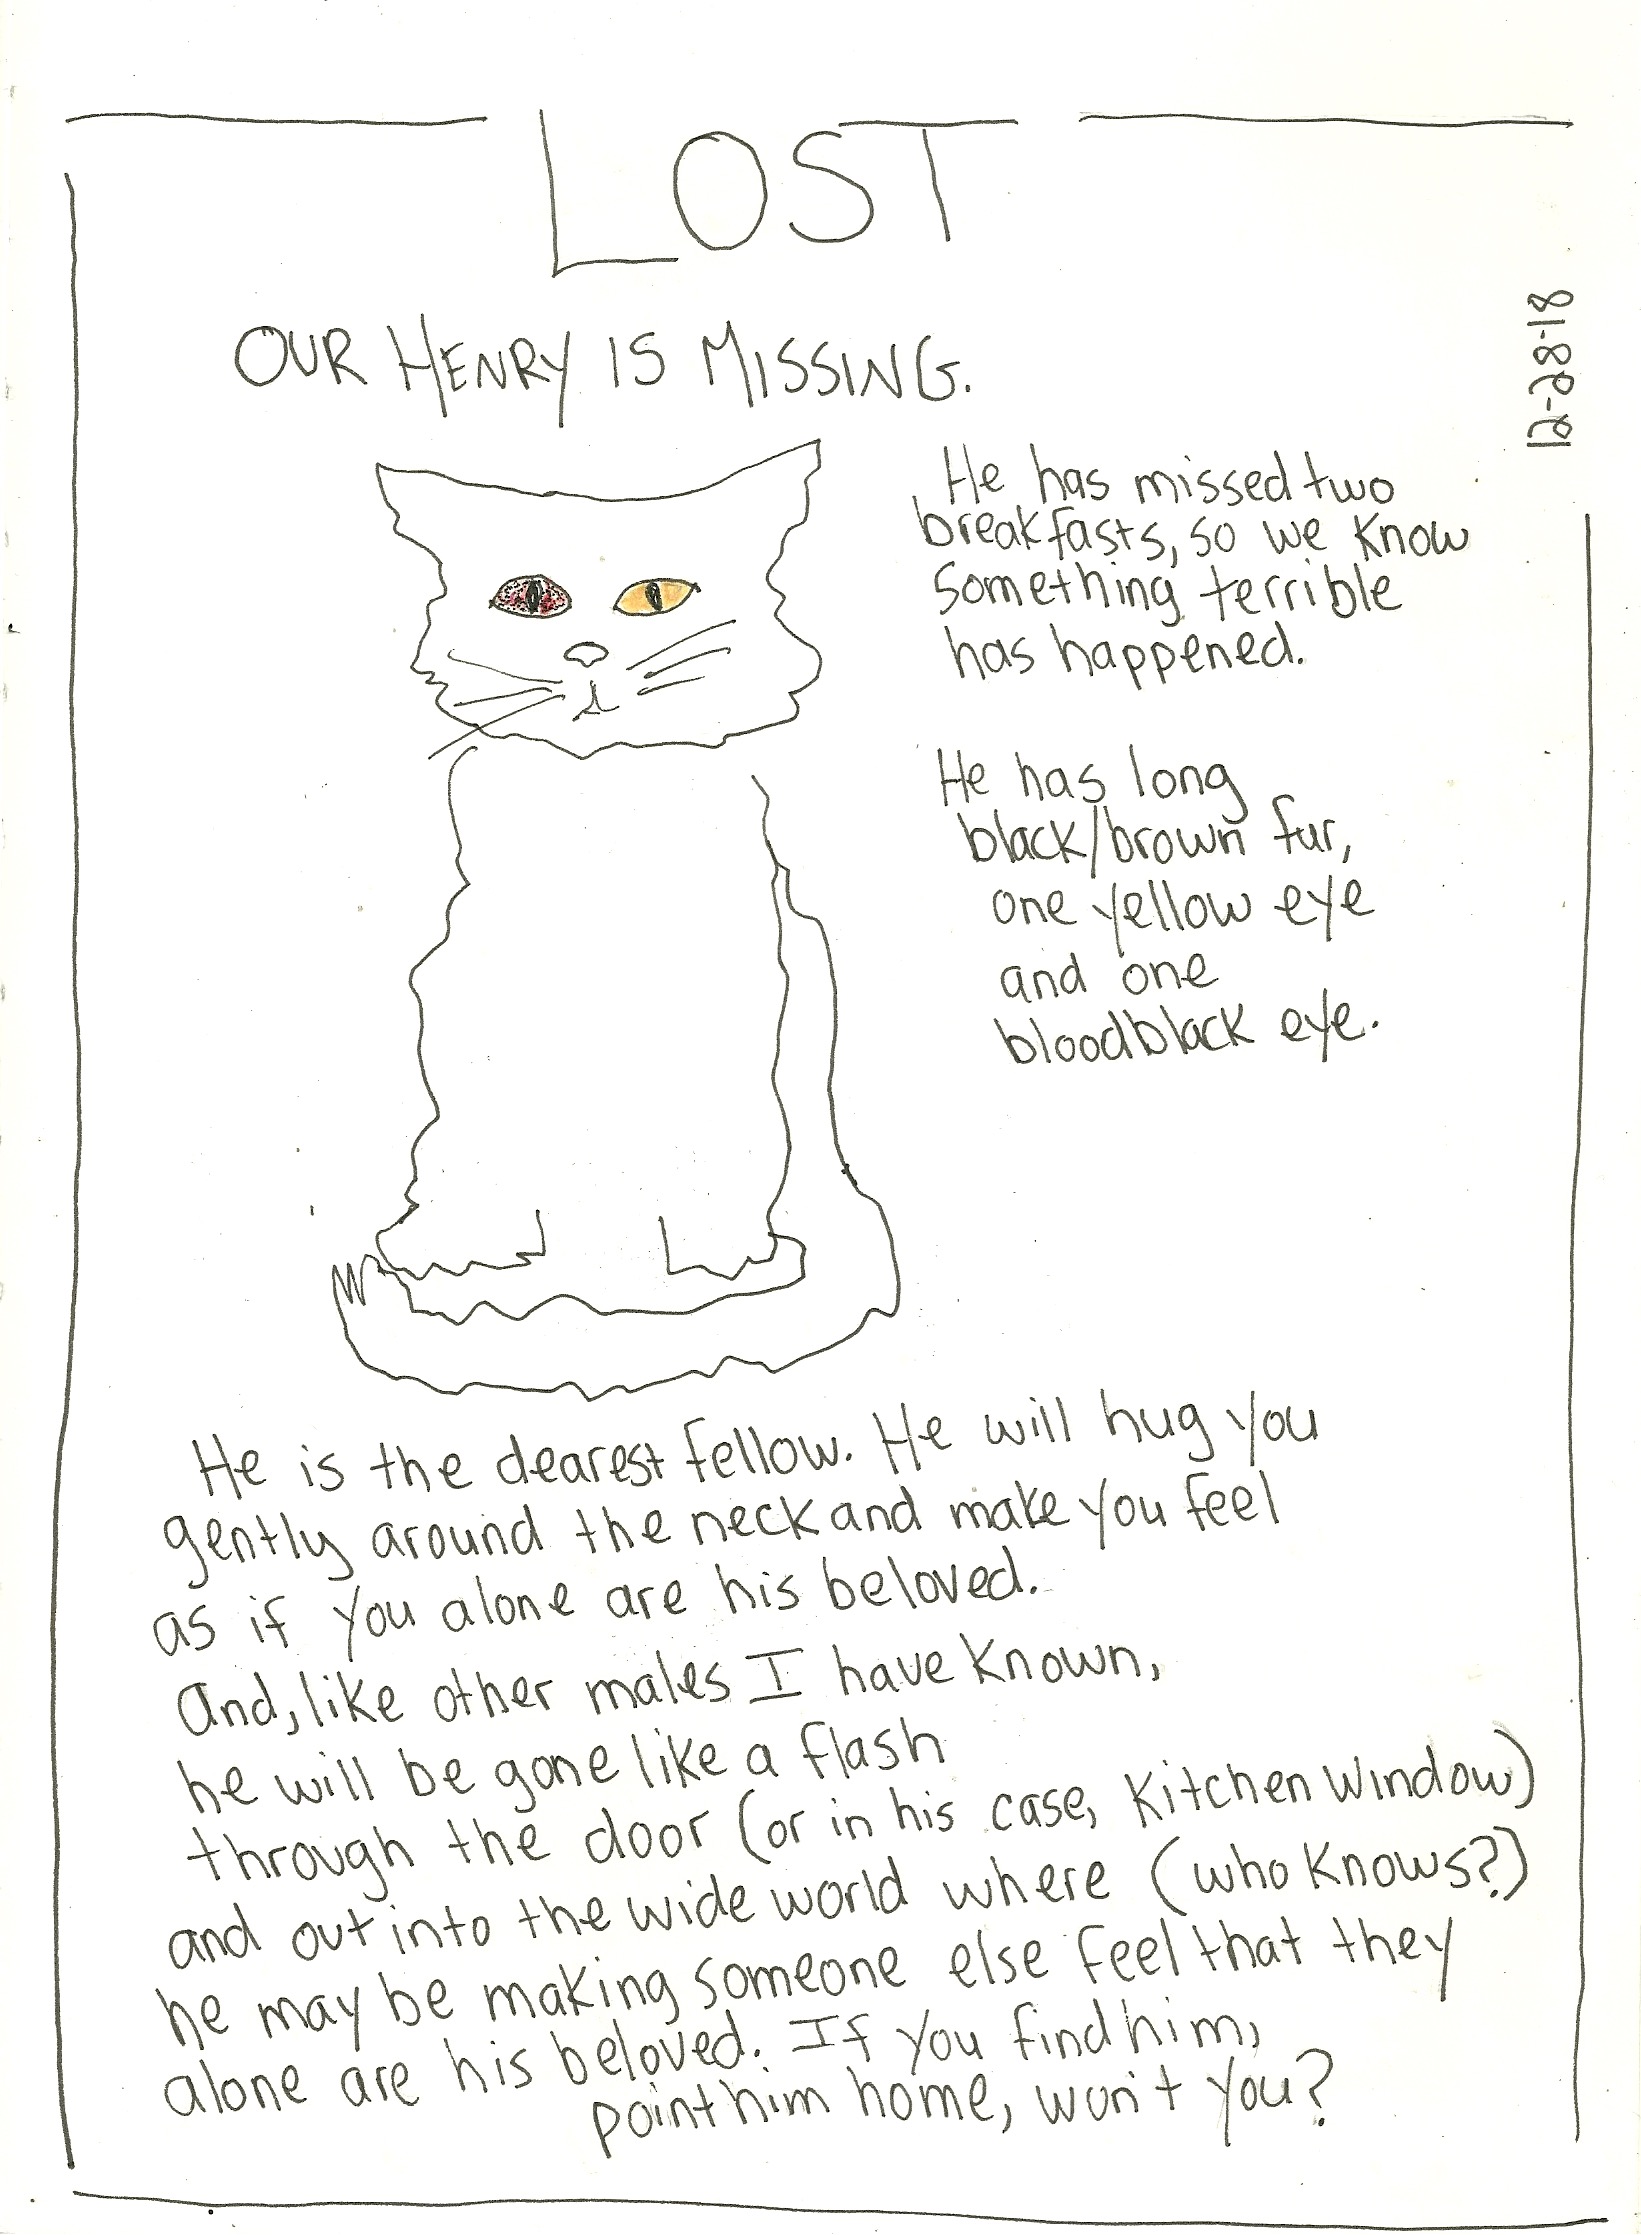 LOST
OUR HENRY IS MISSING.
12-28-18
He has missed two
breakfasts, so we know
something terrible
has happened.
He has long
black/brown fur,
one yellow eye
and one
bloodblack eye.
He is the dearest fellow. He will hug you
gently around the neck and make you feel
as if you alone are his beloved.
And, like other males I have known,
he will be gone like a flash
through the door (or in his case, kitchen window)
and out into the wide world where (who knows?)
he may be making someone else feel that they
alone are his beloved. If you find him,
point him home, won't you?